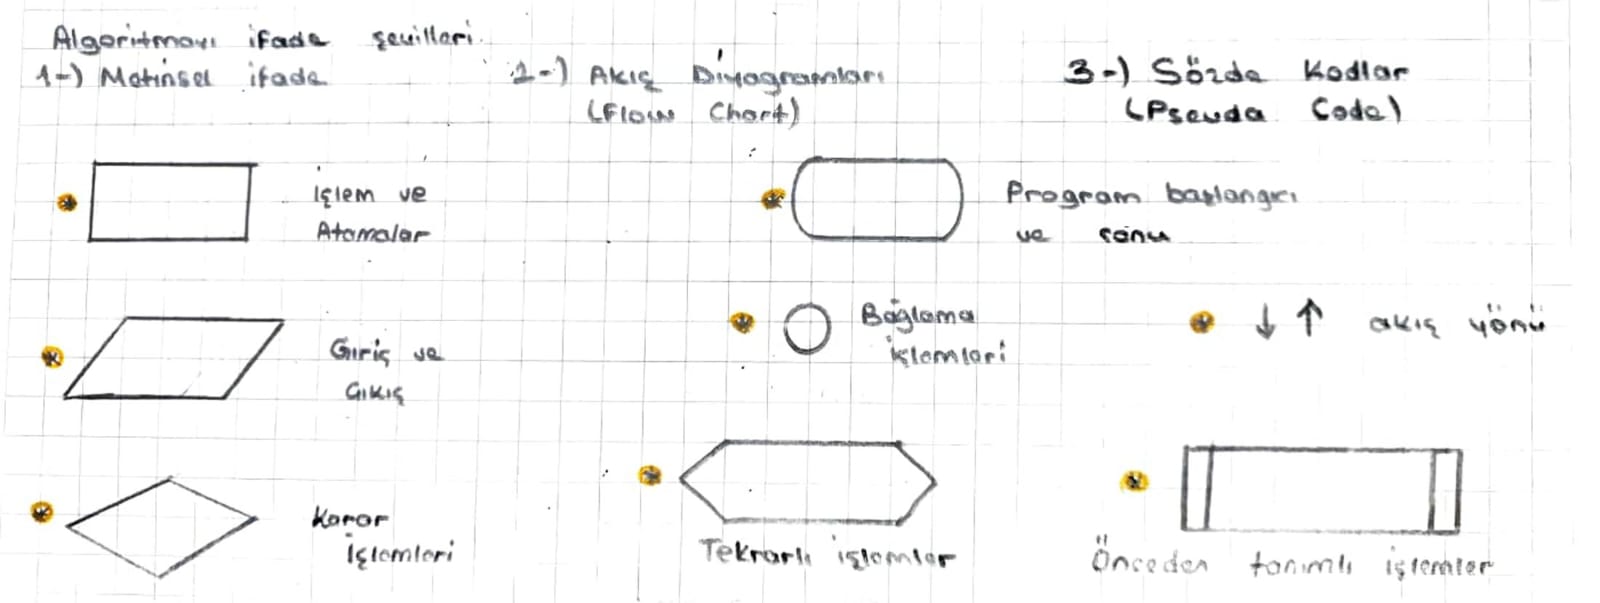 Algoritmayı ifade şekilleri.
1-) Metinsel ifade
2-) Akış Diyagramları
(Flow Chart)
3-) Sözde Kodlar
(Pseuda Code)
İşlem ve
Atamalar
Program başlangıcı
ve sonu
Giriş ve
Çıkış
Bağlama
işlemleri
↓ ↑ akış yönü
Karar
İşlemleri
Tekrarlı işlemler
Önceden tanımlı işlemler